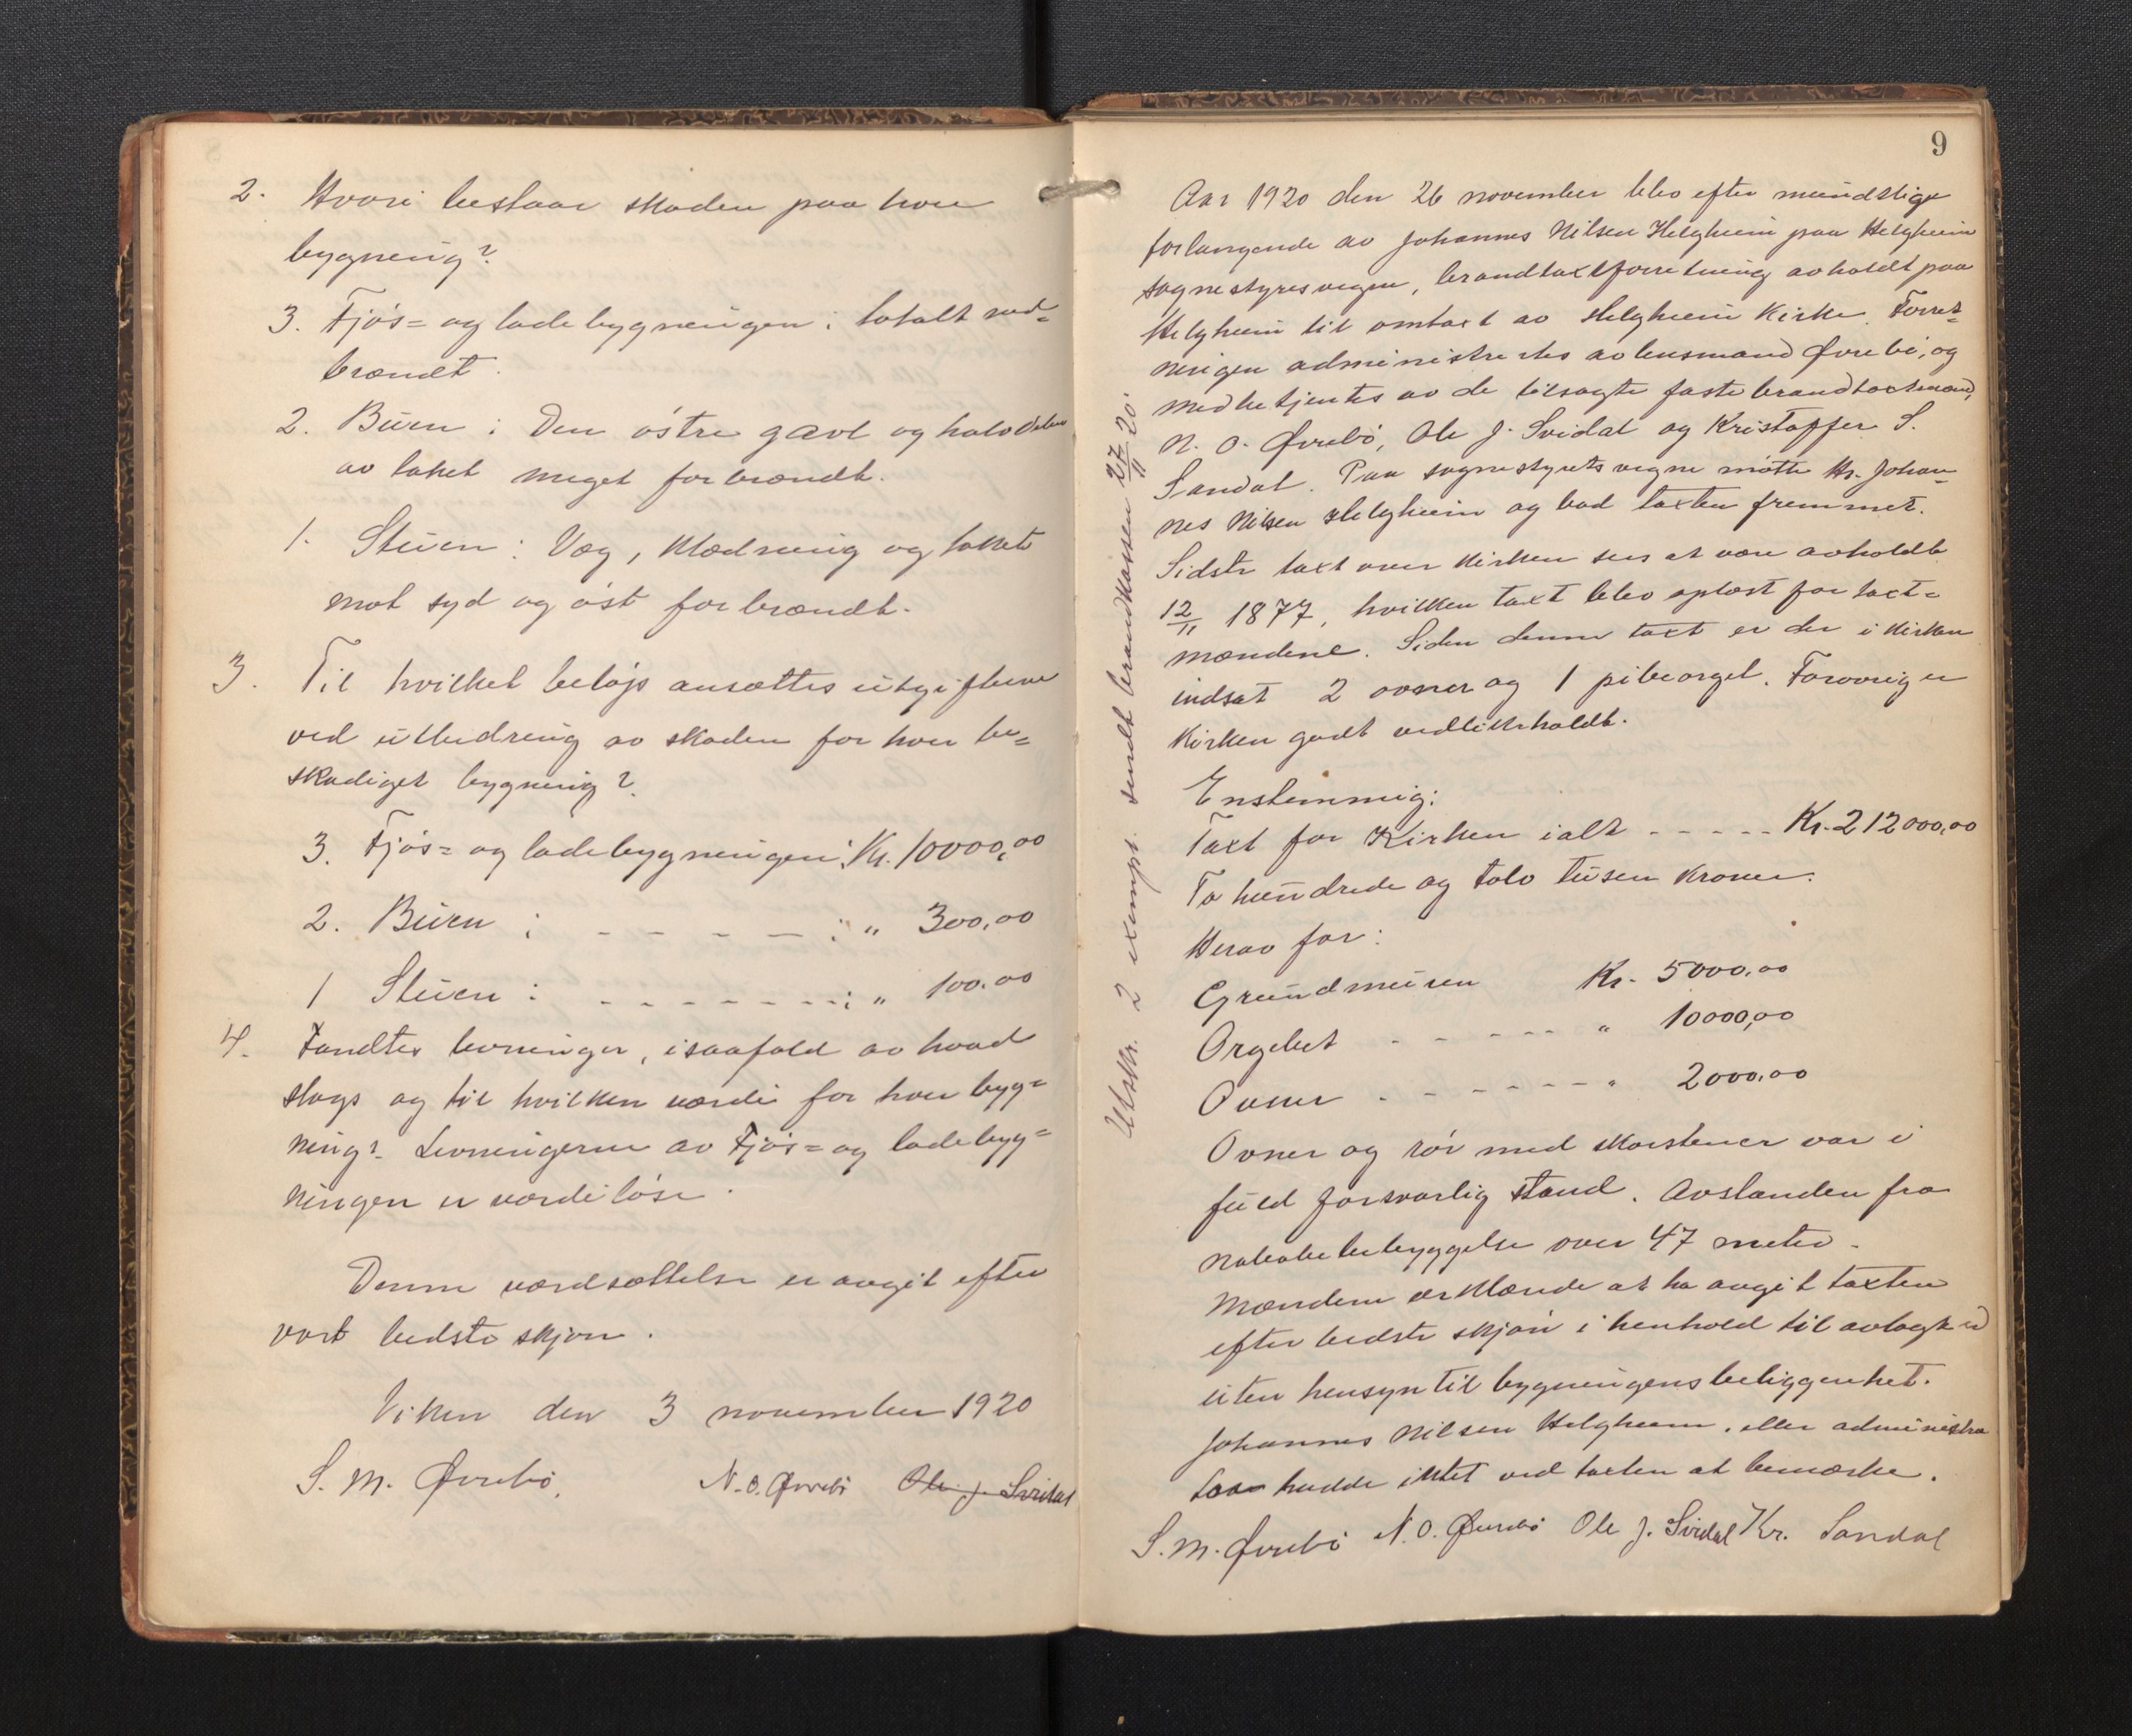 2. Hvori bestaar skaden paa hver
bygning?
3. Fjøs= og ladebygningen: totalt ned=
brændt.
2. Buen: Den østre gavl og halvdelen
av taket meget forbrændt.
1. Stuen: Væg, klædning og taket
mot syd og øst forbrændt.
3. Til hvilket beløp ansættes utgifterne
ved utbedring av skaden for hver be=
skadiget bygning?
3. Fjøs= og ladebygningen: Kr. 10000,00
2. Buen: - - - - : " 300,00
1 Stuen: - - - - - - - : " 100.00
4. Fandtes levninger, isaafald av hvad
slags og til hvilken værdi for hver byg=
ning? Levningerne av Fjøs= og ladebyg=
ningen er værdiløse.
Denne værdsættelse er avgit efter
vort bedste skjøn.
Viken den 3 november 1920
S. M. Øvrebø. N. O. Øvrebø Ole J. Svidal
9
Aar 1920 den 26 november blev efter mundtlige
forlangende av Johannes Nilsen Helgheim paa Helgheim
sognestyresvegne, brandtaxtforretning avholdt paa
Helgheim til omtaxt av Helgheim Kirke. Forret=
ningen administrertes av lensmand Øvrebø, og
medbetjentes av de tilsagte faste brandtaxtmænd,
N. O. Øvrebø, Ole J. Svidal og Kristoffer S.
Sandal. Paa sognestyrets vegne møtte Hr. Johan=
nes Nilsen Helgheim og bad taxten fremmet.
Sidste taxt over kirken sees at være avholdt
12/11 1877, hvilken taxt blev oplæst for taxt=
mændene. Siden denne taxt er der i kirken
indsat 2 ovner og 1 pibeorgel. Forøvrig er
kirken godt vedlikeholdt.
Enstemmig:
Taxt for Kirken ialt - - - - - Kr. 212000,00
To hundrede og tolv tusen kroner.
Herav for:
Grundmuren Kr. 5000,00
Orgelet - - - - - - " 10000,00
Ovner - - - - - - " 2000,00
Ovner og rør med skorstener var i
fuld forsvarlig stand. Avstanden fra
nabobebyggelse over 47 meter.
Mændene erklærede at ha avgit taxten
efter bedste skjøn i henhold til avlagt ed
uten hensyn til bygningens beliggenhet.
Johannes Nilsen Helgheim, eller administra
tor hadde intet ved taxten at bemærke.
S. M. Øvrebø N. O. Øvrebø Ole J. Svidal Kr. Sandal
Utskr. 2 exempl. sendt brandkassen 27/11 20.